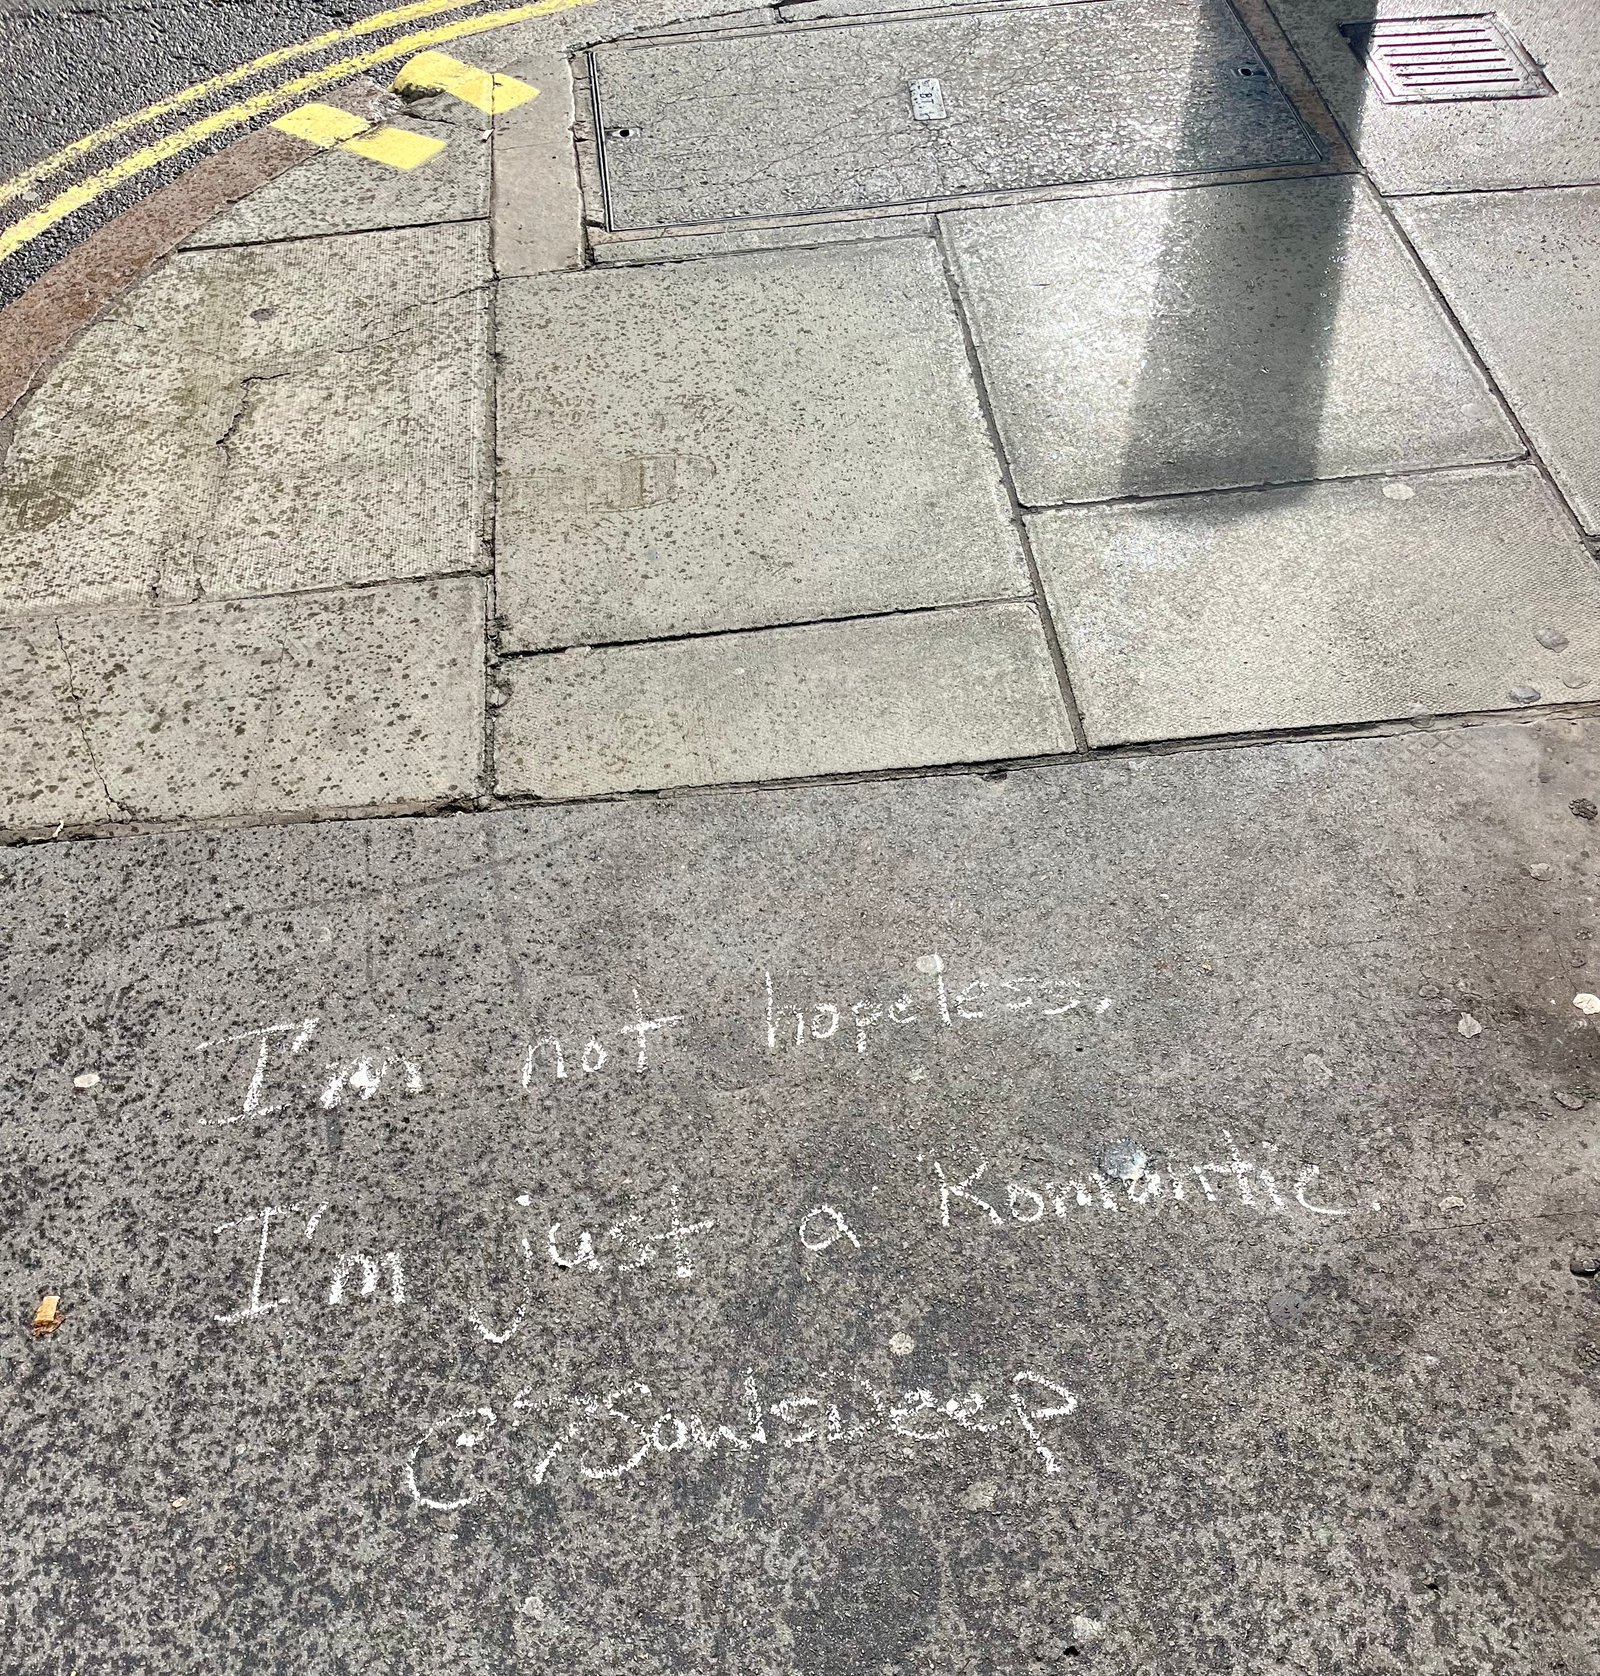 BT
I'm not hopeless,
I'm just a Romantic.
@7SoulsDeep